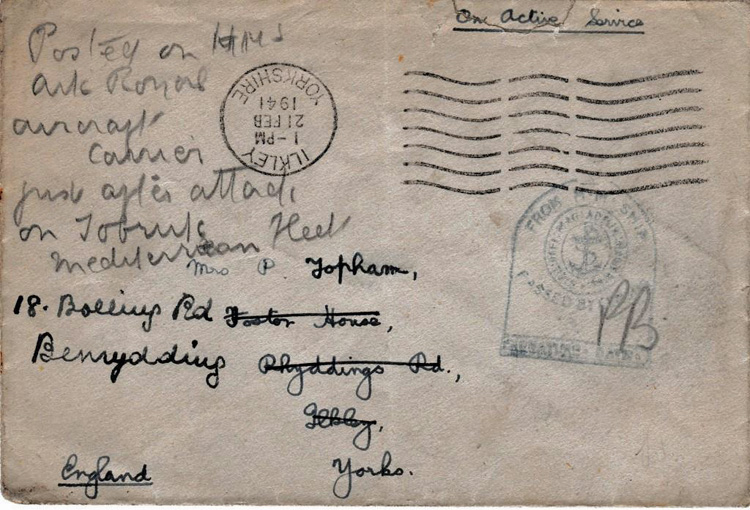 On Active Service
Posted on HMS
Ark Royal
aircraft
carrier
just after attack
on Tobruk
Mediterranean Fleet
ILKLEY
1-PM
21 FEB
1941
YORKSHIRE
FROM H.M. SHIP
PASSED BY
PB
Mrs P. Topham,
18. Bolling Rd Foster House,
Benrydding Rhyddings Rd.,
Ilkley,
England Yorks.